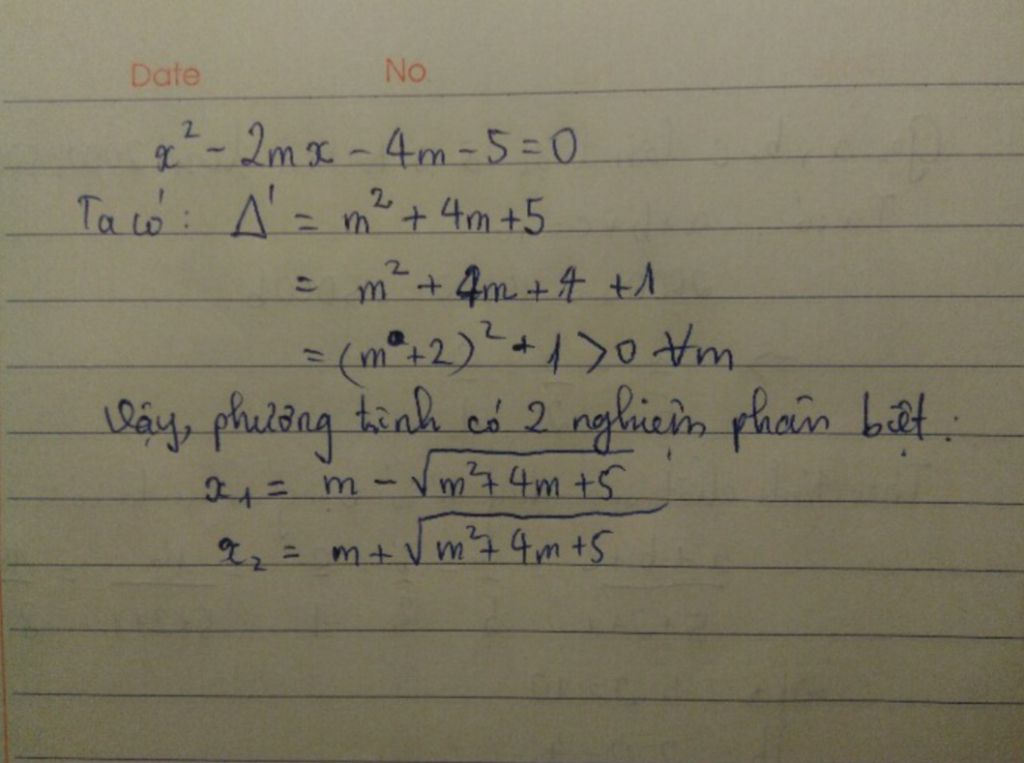 Date No
x² - 2mx - 4m - 5 = 0
Ta có: Δ' = m² + 4m + 5
= m² + 4m + 4 + 1
= (m + 2)² + 1 > 0 ∀m
Vậy, phương trình có 2 nghiệm phân biệt:
x₁ = m - √(m² + 4m + 5)
x₂ = m + √(m² + 4m + 5)